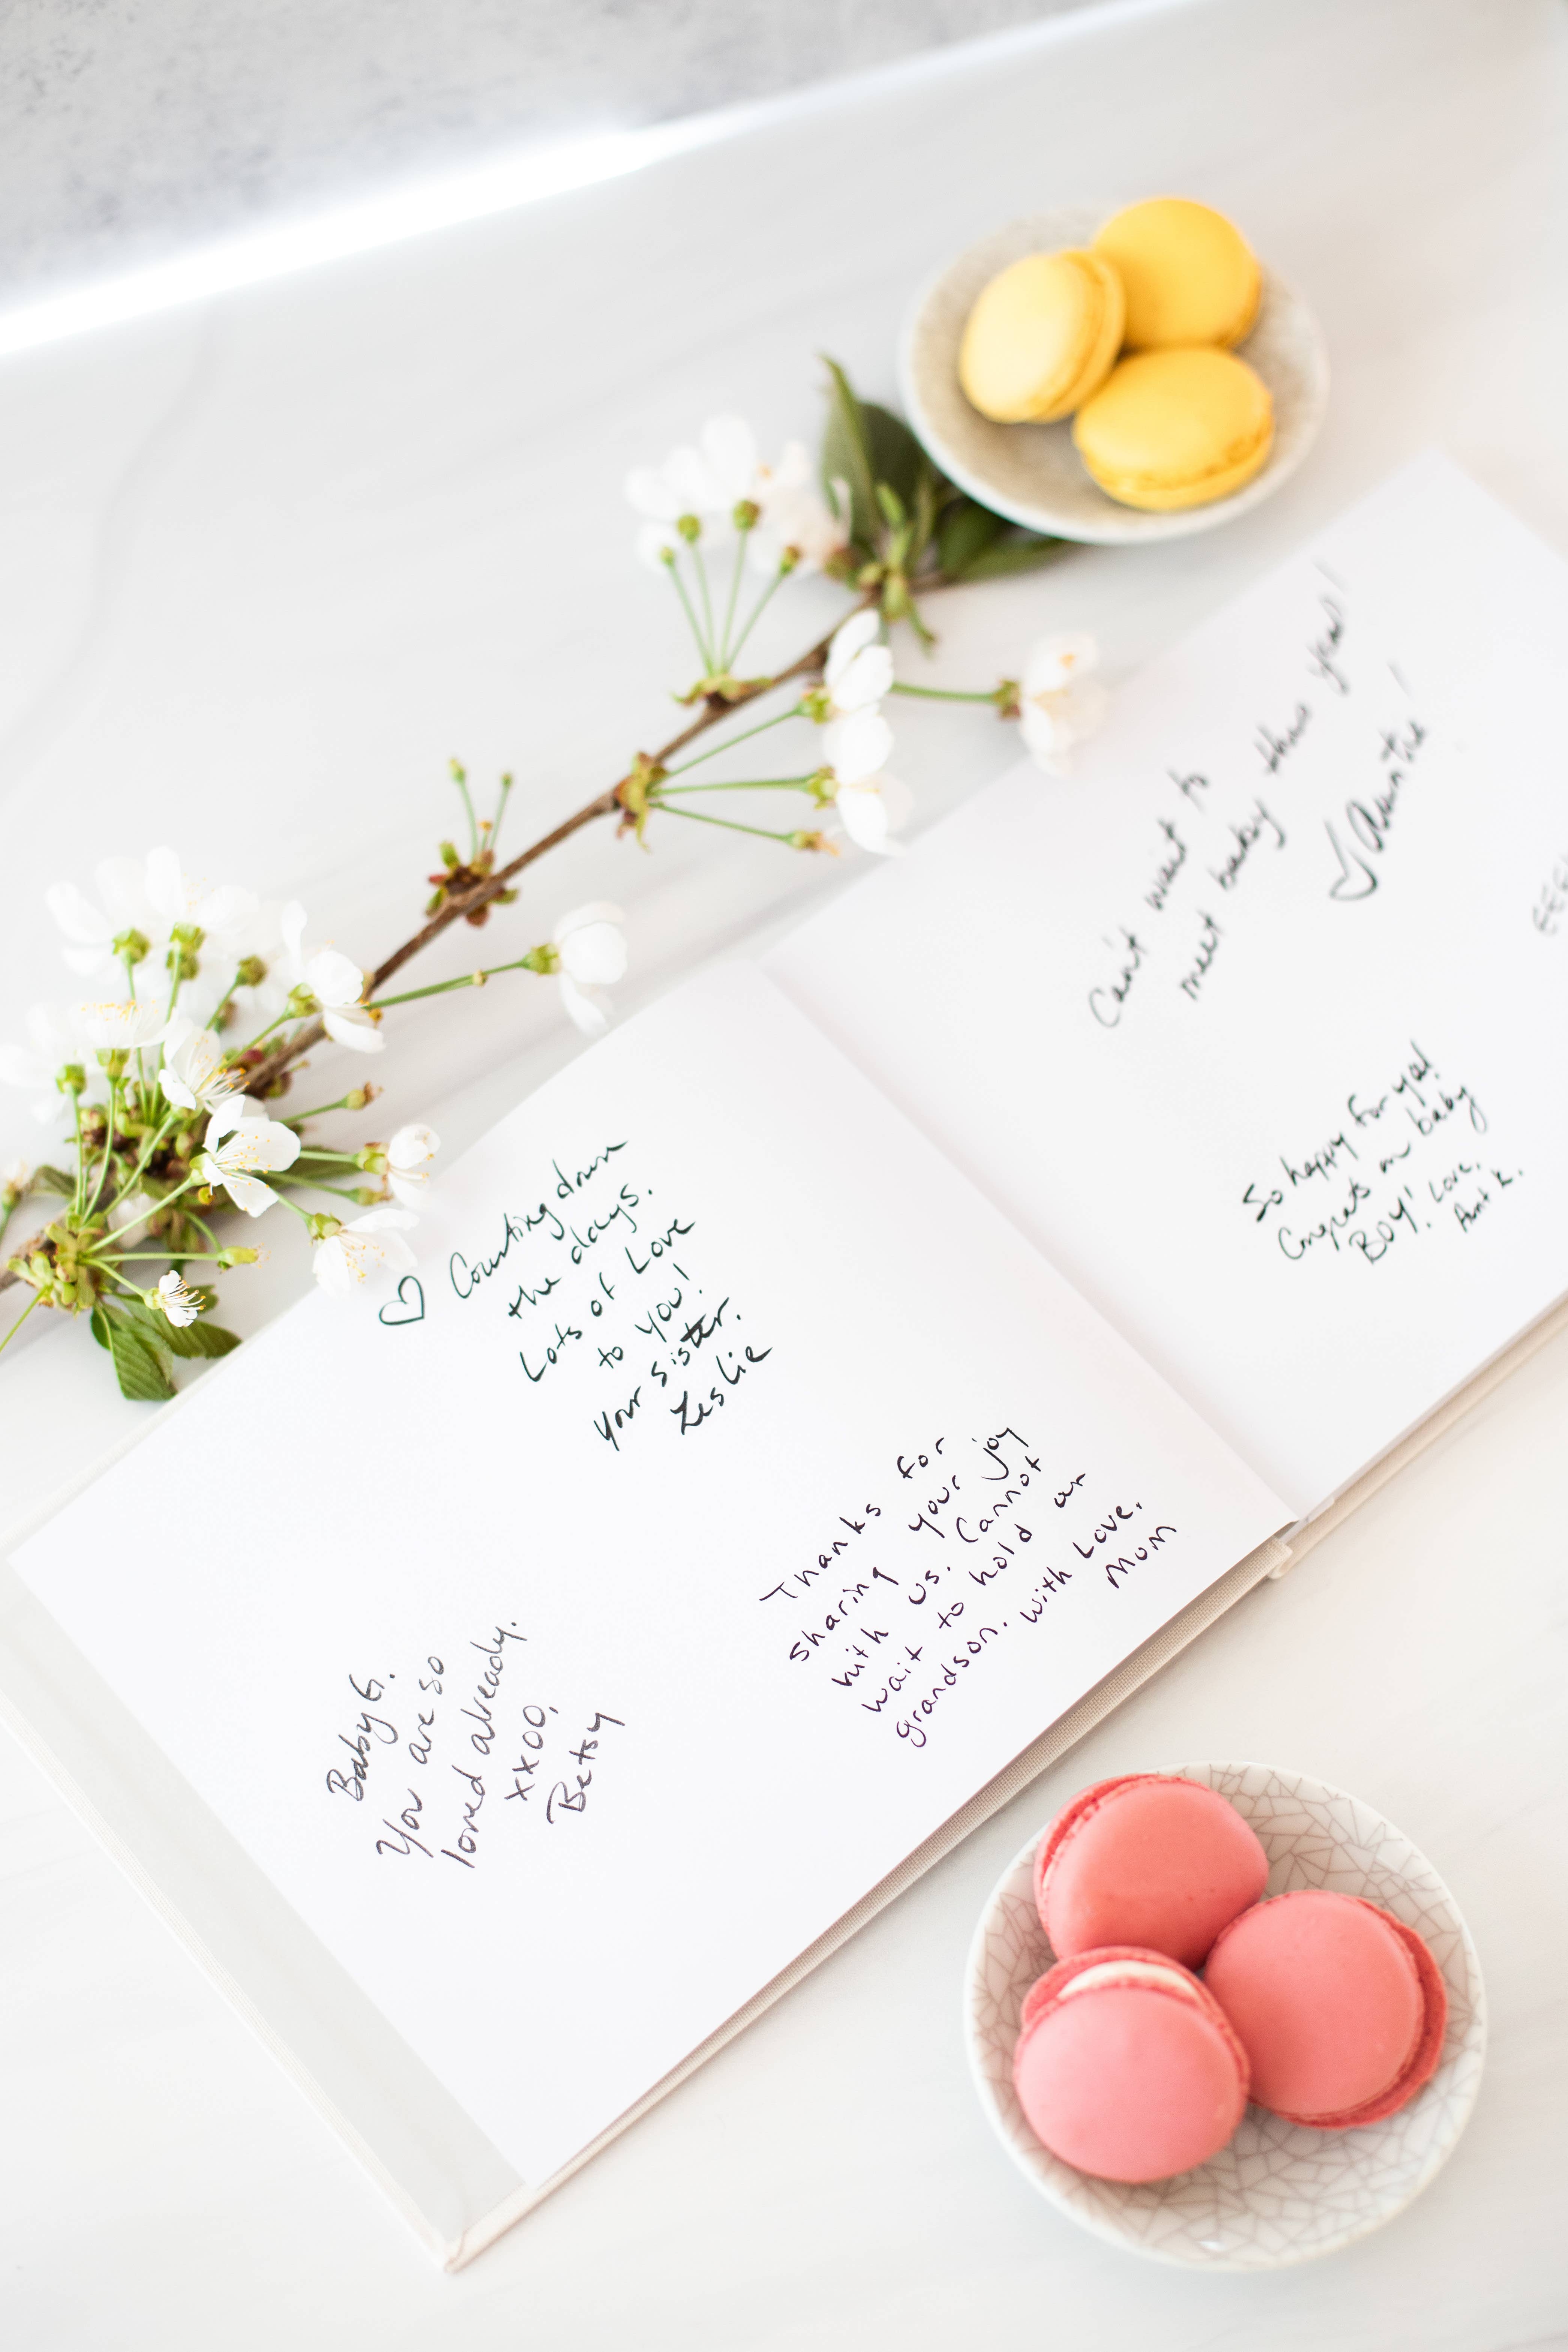 ♡ Counting down
the days.
Lots of Love
to you!
your sister.
Leslie
Baby G.
You are so
loved already.
xxoo,
Betsy
Thanks for
sharing your joy
with us. Cannot
wait to hold our
grandson. With Love,
Mom
Can't wait to
meet baby this year!
Auntie!
So happy for you!
Congrats on baby
BOY! Love,
Aunt K.